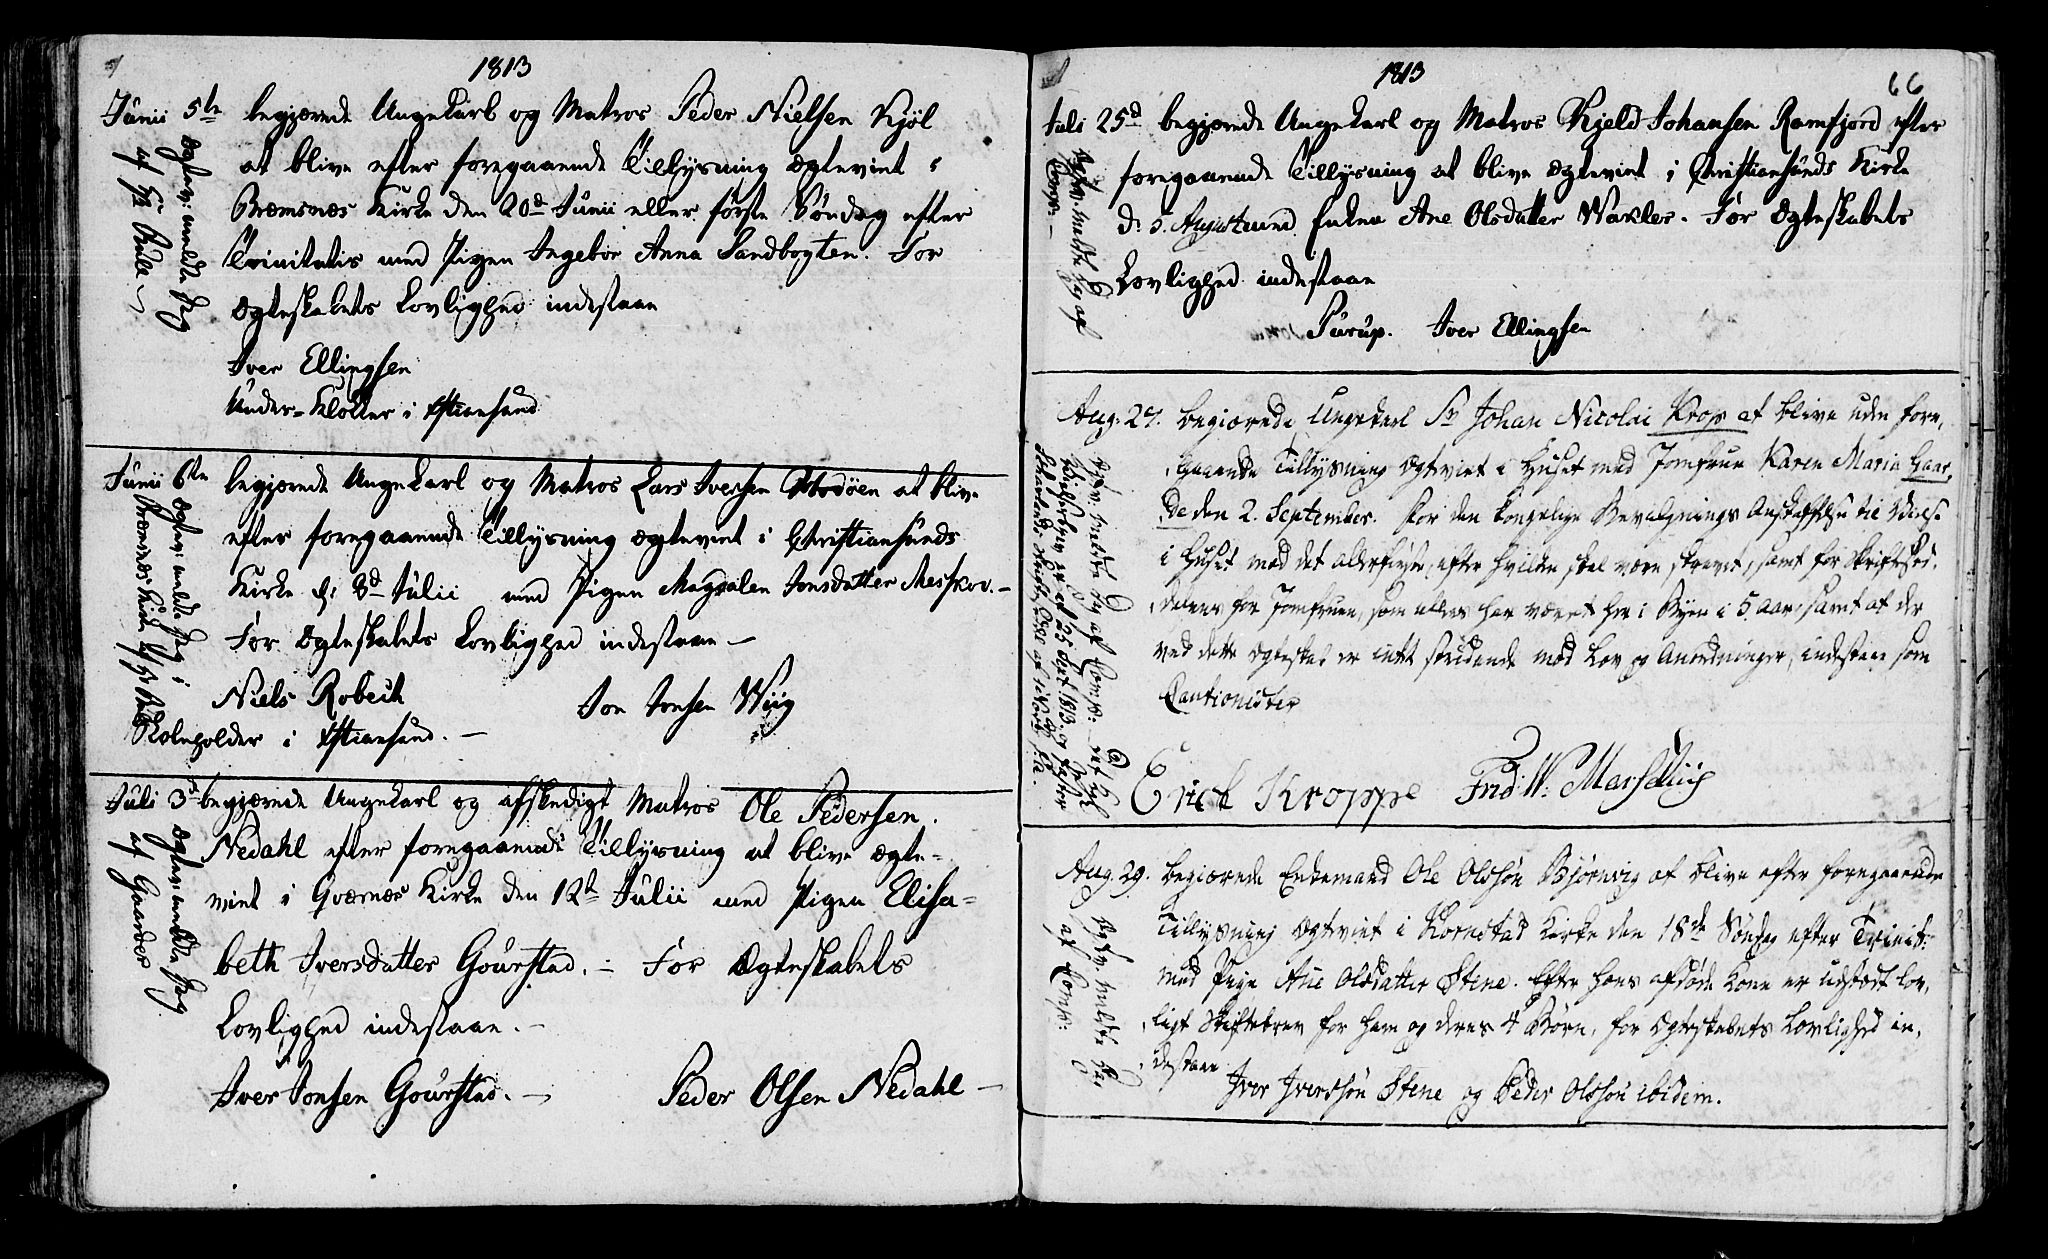 1813
Junii 5te begjærede Ungekarl og Matros Peder Nielsen Kjöl
at blive efter foregaaende Tillysning Ægteviet i
Bremsnæs Kirke den 20d Junii eller første Söndag efter
Trinitatis med Pigen Ingebor Anna Sandbogten. For
Ægteskabets Lovlighed indestaae
Iver Ellingsen
Under-Klokker i Xstiansund
Ægtev: meldte jeg
af
Junii 6te begjærede Ungekarl og Matros Lars Iversen at blive
efter foregaaende Tillysning Ægteviet i Christiansunds
Kirke d: 8d Julii med Pigen Magdalen Jonsdatter Meskov. –
For Ægteskabets Lovlighed indestaae –
Niels Robeck Jon Jonsen Wiig
i Xstiansund. –
Ægtev: meldte jeg i
Bremsnæs Kirke
Juli 3d begjærede Ungekarl og afskediget Matros Ole Pedersen
Nedahl efter foregaaende Tillysning at blive Ægte-
viet i Qværnæs Kirke den 12te Julii med Pigen Elisa-
beth Iversdatter Goürstad. – For Ægteskabets
Lovlighed indestaae. –
Iver Jonsen Goürstad. – Peder Olsen Nedahl –
Ægtev: meldte jeg
af
1813
66
Juli 25d begjærede Ungekarl og Matros Kjeld Johansen Ramfjord efter
foregaaende Tillysning at blive Ægteviet i Christiansunds Kirke
d: 5. August med Enken Ane Olsdatter Wahler. For Ægteskabets
Lovlighed indestaae
Purup. Iver Ellingsen
Ægtev: meldte jeg af
Comp: –
Aug: 27. begiærede Ungekarl Sr Johan Nicolai Krop at blive uden fore,
,gaaende Tillysning Ægteviet i Huset med Jomfrue Karen Maria Gaar,
,de den 2. September. For den kongelige Bevilgnings Anskaffelse til Vielse
i Huset med det allerførste, efter hvilken skal være skrevet, samt for
for Jomfruen, som ellers har været her i Byen i 5 Aar, samt at der
ved dette Ægteskab er intet stridende mod Lov og Anordninger, indestaae som
Cautionister
Erick Kroppe Frid: W: Marselliis
Ægtev: meldte jeg af Comp: – Det kgl
Vielsesbrev er af 25 Aug 1813
Aug. 29. begiærede Enkemand Ole Olssön Björnvig at blive efter foregaaende
Tillysning Ægteviet i Kornstad Kirke den 18de Söndag efter Trinit:
med Pige Ane Olsdatter Stene. Efter hans afdöde Kone er udstedt lov,
,ligt Skiftebrev for ham og deres 4 Börn, for Ægteskabets Lovlighed in,
,destaae
Iver Iverssön Stene og Peder Olssön ibidem.
Ægtv. meldte jeg
af Comp: